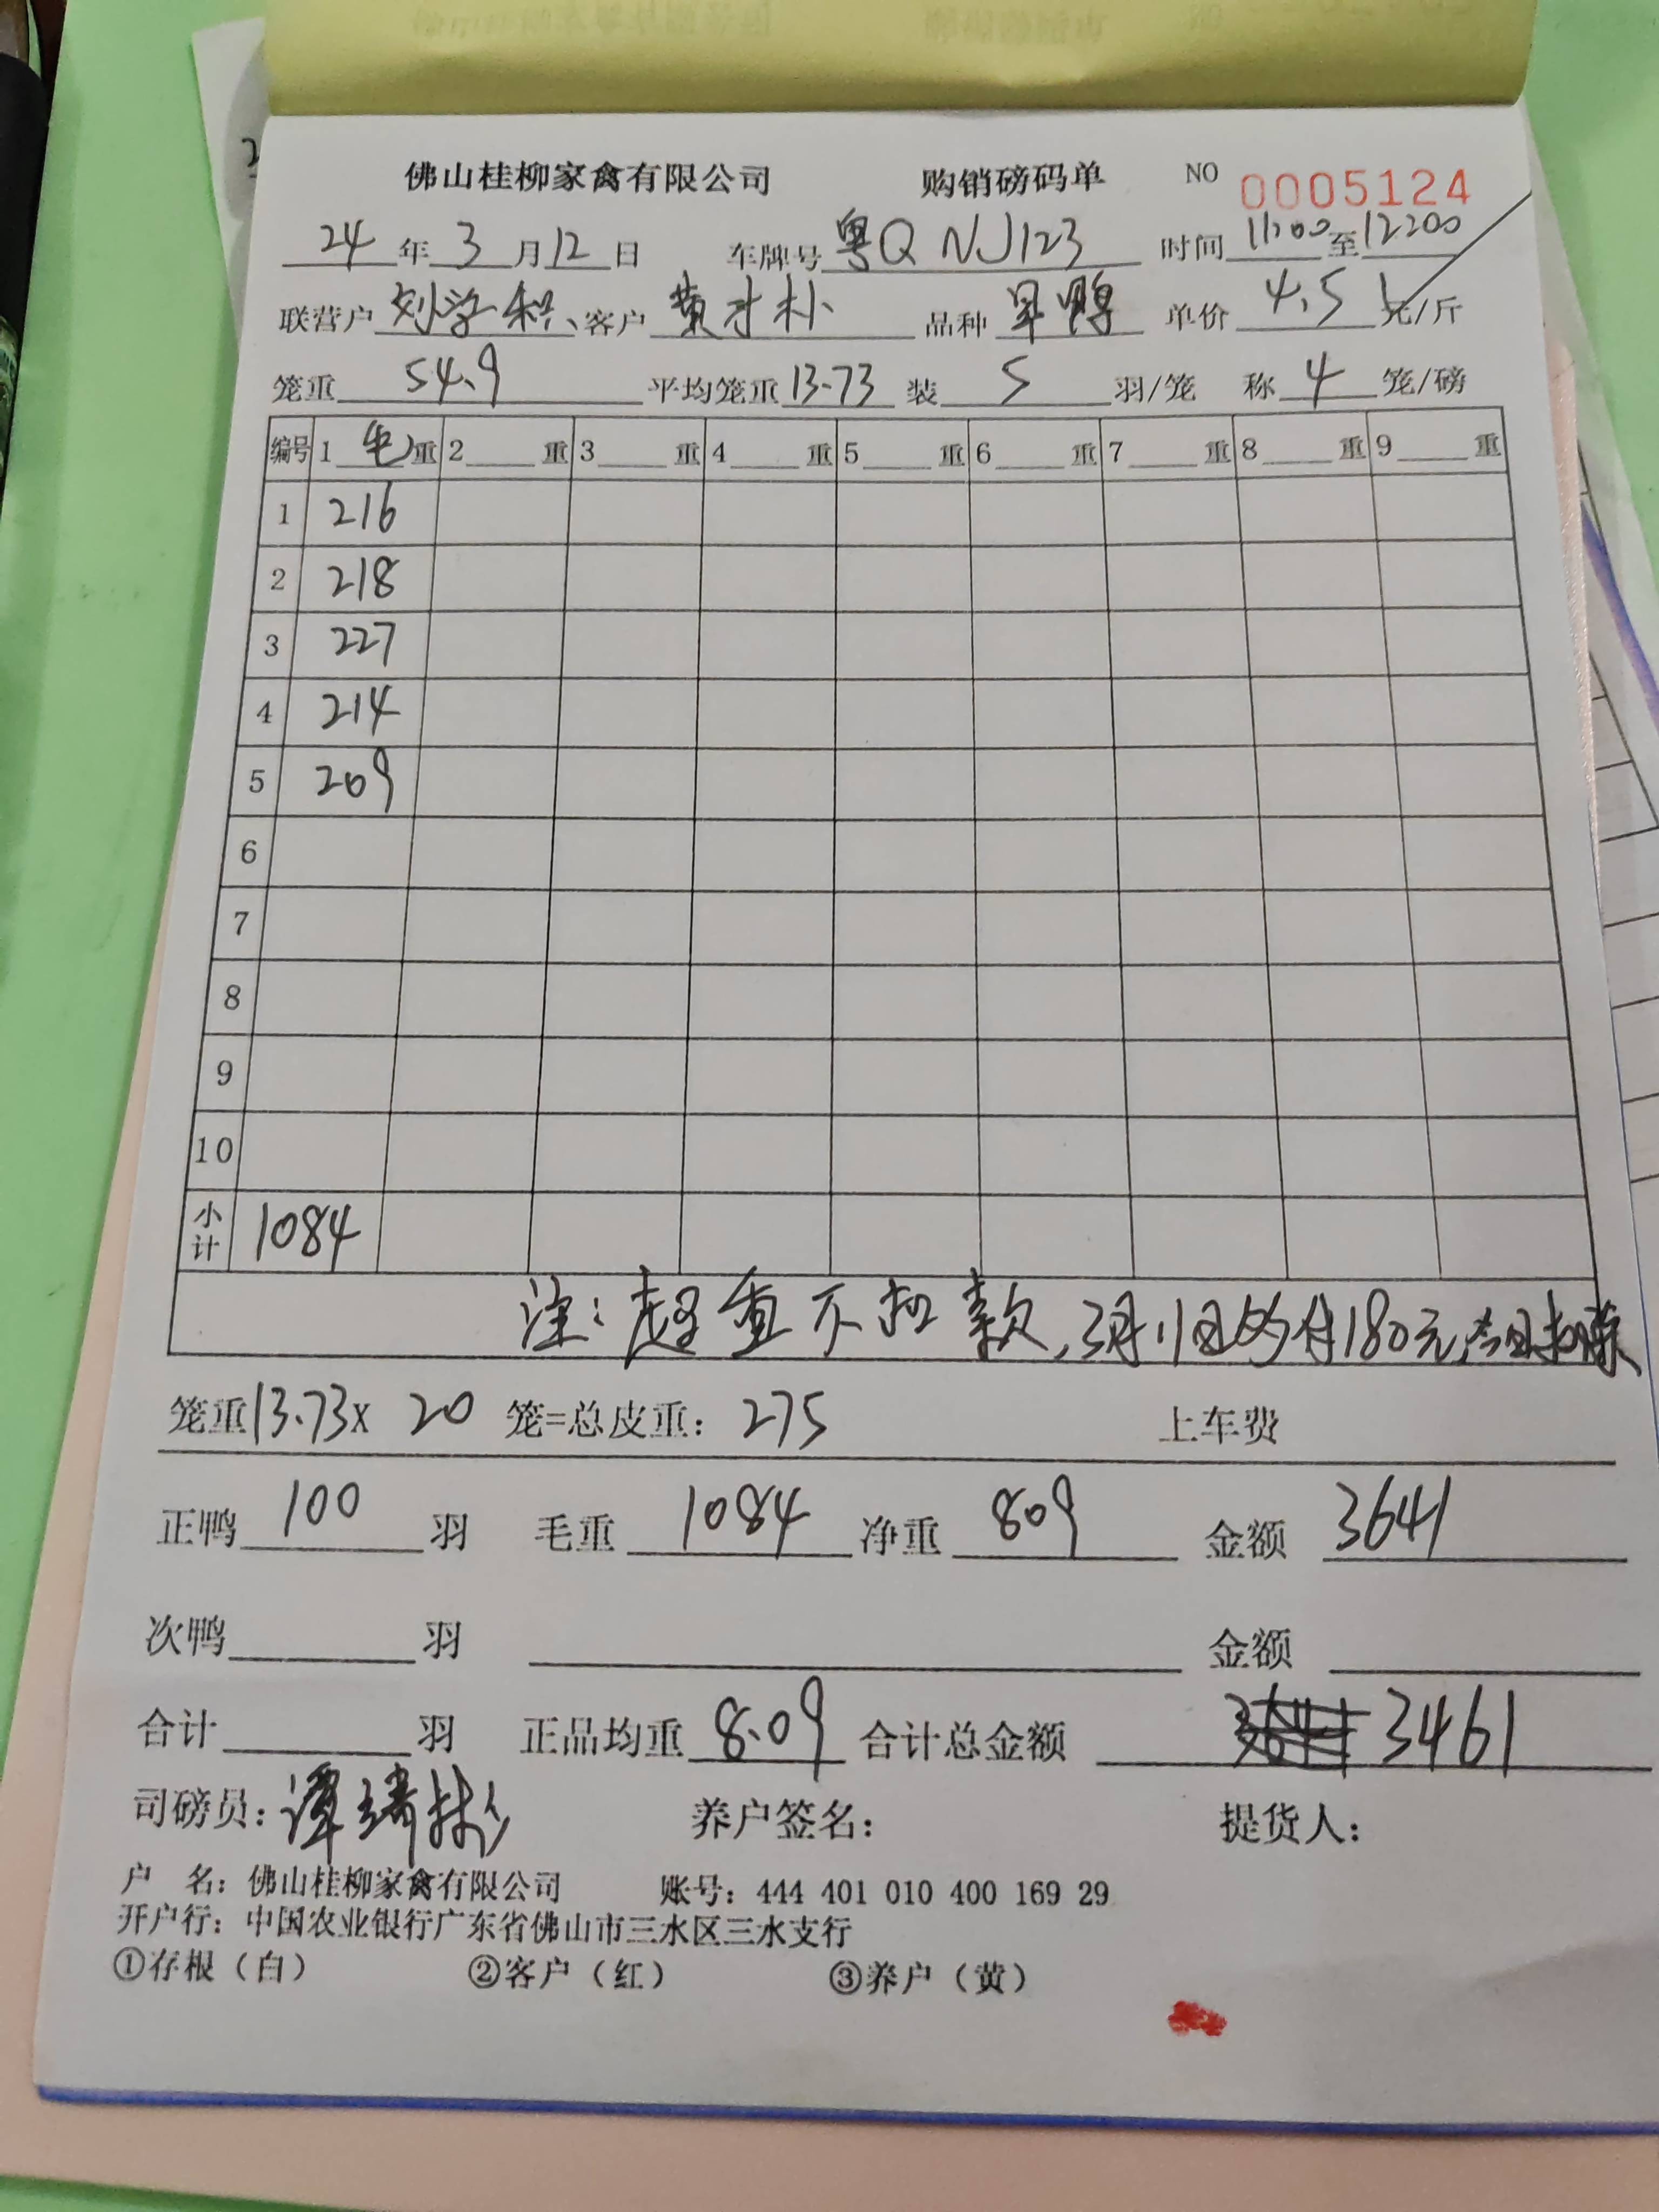 佛山桂柳家禽有限公司 购销磅码单 NO 0005124
24年3月12日 车牌号粤Q NJ123 时间11:00至12:00
联营户 刘学 客户 黄才朴 品种 旱鸭 单价 4.5 元/斤
笼重 54.9 平均笼重 13.73 装 5 羽/笼 称 4 笼/磅
编号 1 毛重 2 重 3 重 4 重 5 重 6 重 7 重 8 重 9 重
1 216
2 218
3 227
4 214
5 209
6
7
8
9
10
小计 1084
注:超重不扣款,3月11日 付180元,今日扣
笼重13.73X 20 笼=总皮重:275 上车费
正鸭 100 羽 毛重 1084 净重 809 金额 3641
次鸭 羽 金额
合计 羽 正品均重 8.09 合计总金额 3461
司磅员:谭 养户签名: 提货人:
户 名:佛山桂柳家禽有限公司 账号:444 401 010 400 169 29
开户行:中国农业银行广东省佛山市三水区三水支行
①存根(白) ②客户(红) ③养户(黄)